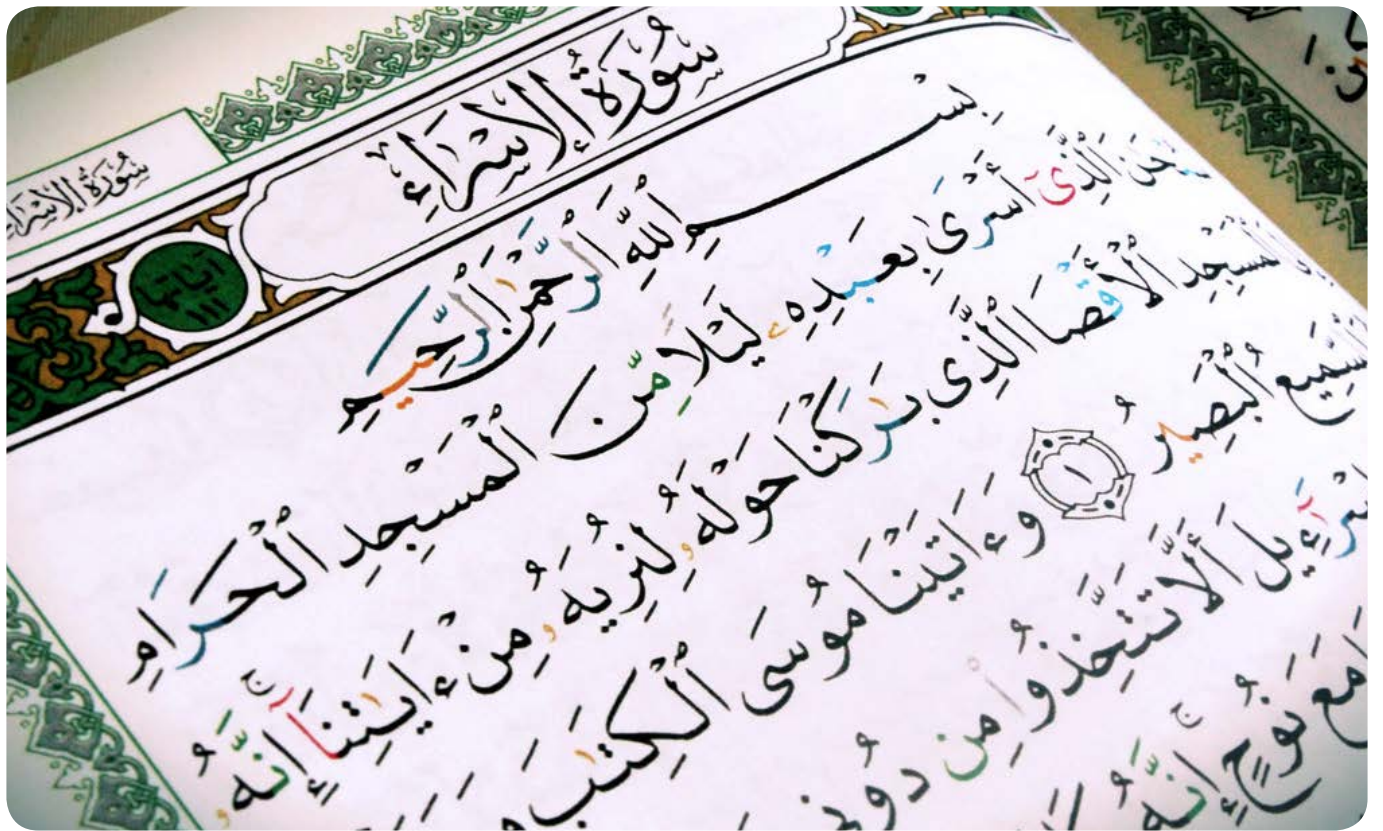 سُورَةُ الإِسْرَاءِ
سُورَةُ الإِسْرَاءِ
آيَاتُهَا
١١١
بِسْمِ ٱللَّهِ ٱلرَّحْمَٰنِ ٱلرَّحِيمِ
ٱلَّذِىٓ أَسْرَىٰ بِعَبْدِهِۦ لَيْلًا مِّنَ ٱلْمَسْجِدِ ٱلْحَرَامِ
ٱلْمَسْجِدِ ٱلْأَقْصَا ٱلَّذِى بَٰرَكْنَا حَوْلَهُۥ لِنُرِيَهُۥ مِنْ ءَايَٰتِنَآ ۚ إِنَّهُۥ
ٱلسَّمِيعُ ٱلْبَصِيرُ ١ وَءَاتَيْنَا مُوسَى ٱلْكِتَٰبَ
أَلَّا تَتَّخِذُوا۟ مِن دُونِى
مَعَ نُوحٍ ۚ إِنَّهُۥ